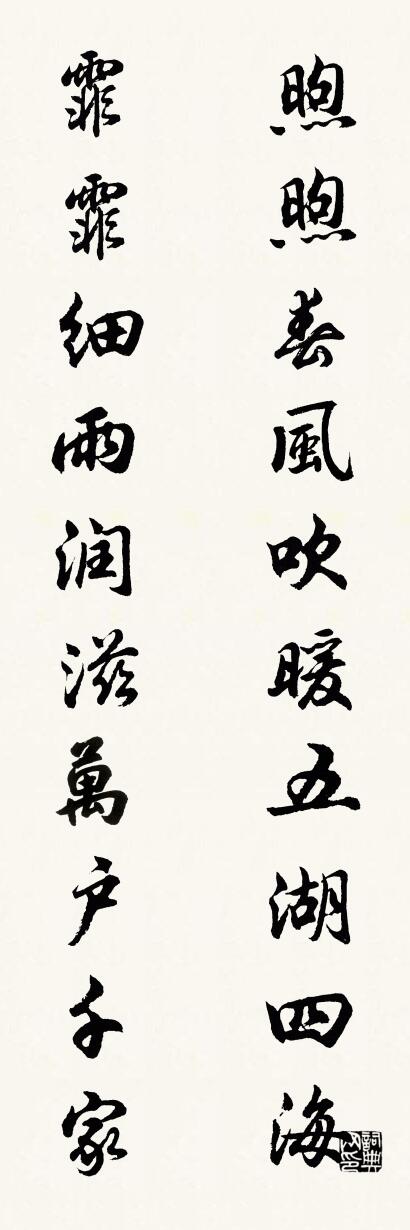 煦煦春風吹暖五湖四海
霏霏细雨润滋萬户千家
詞典